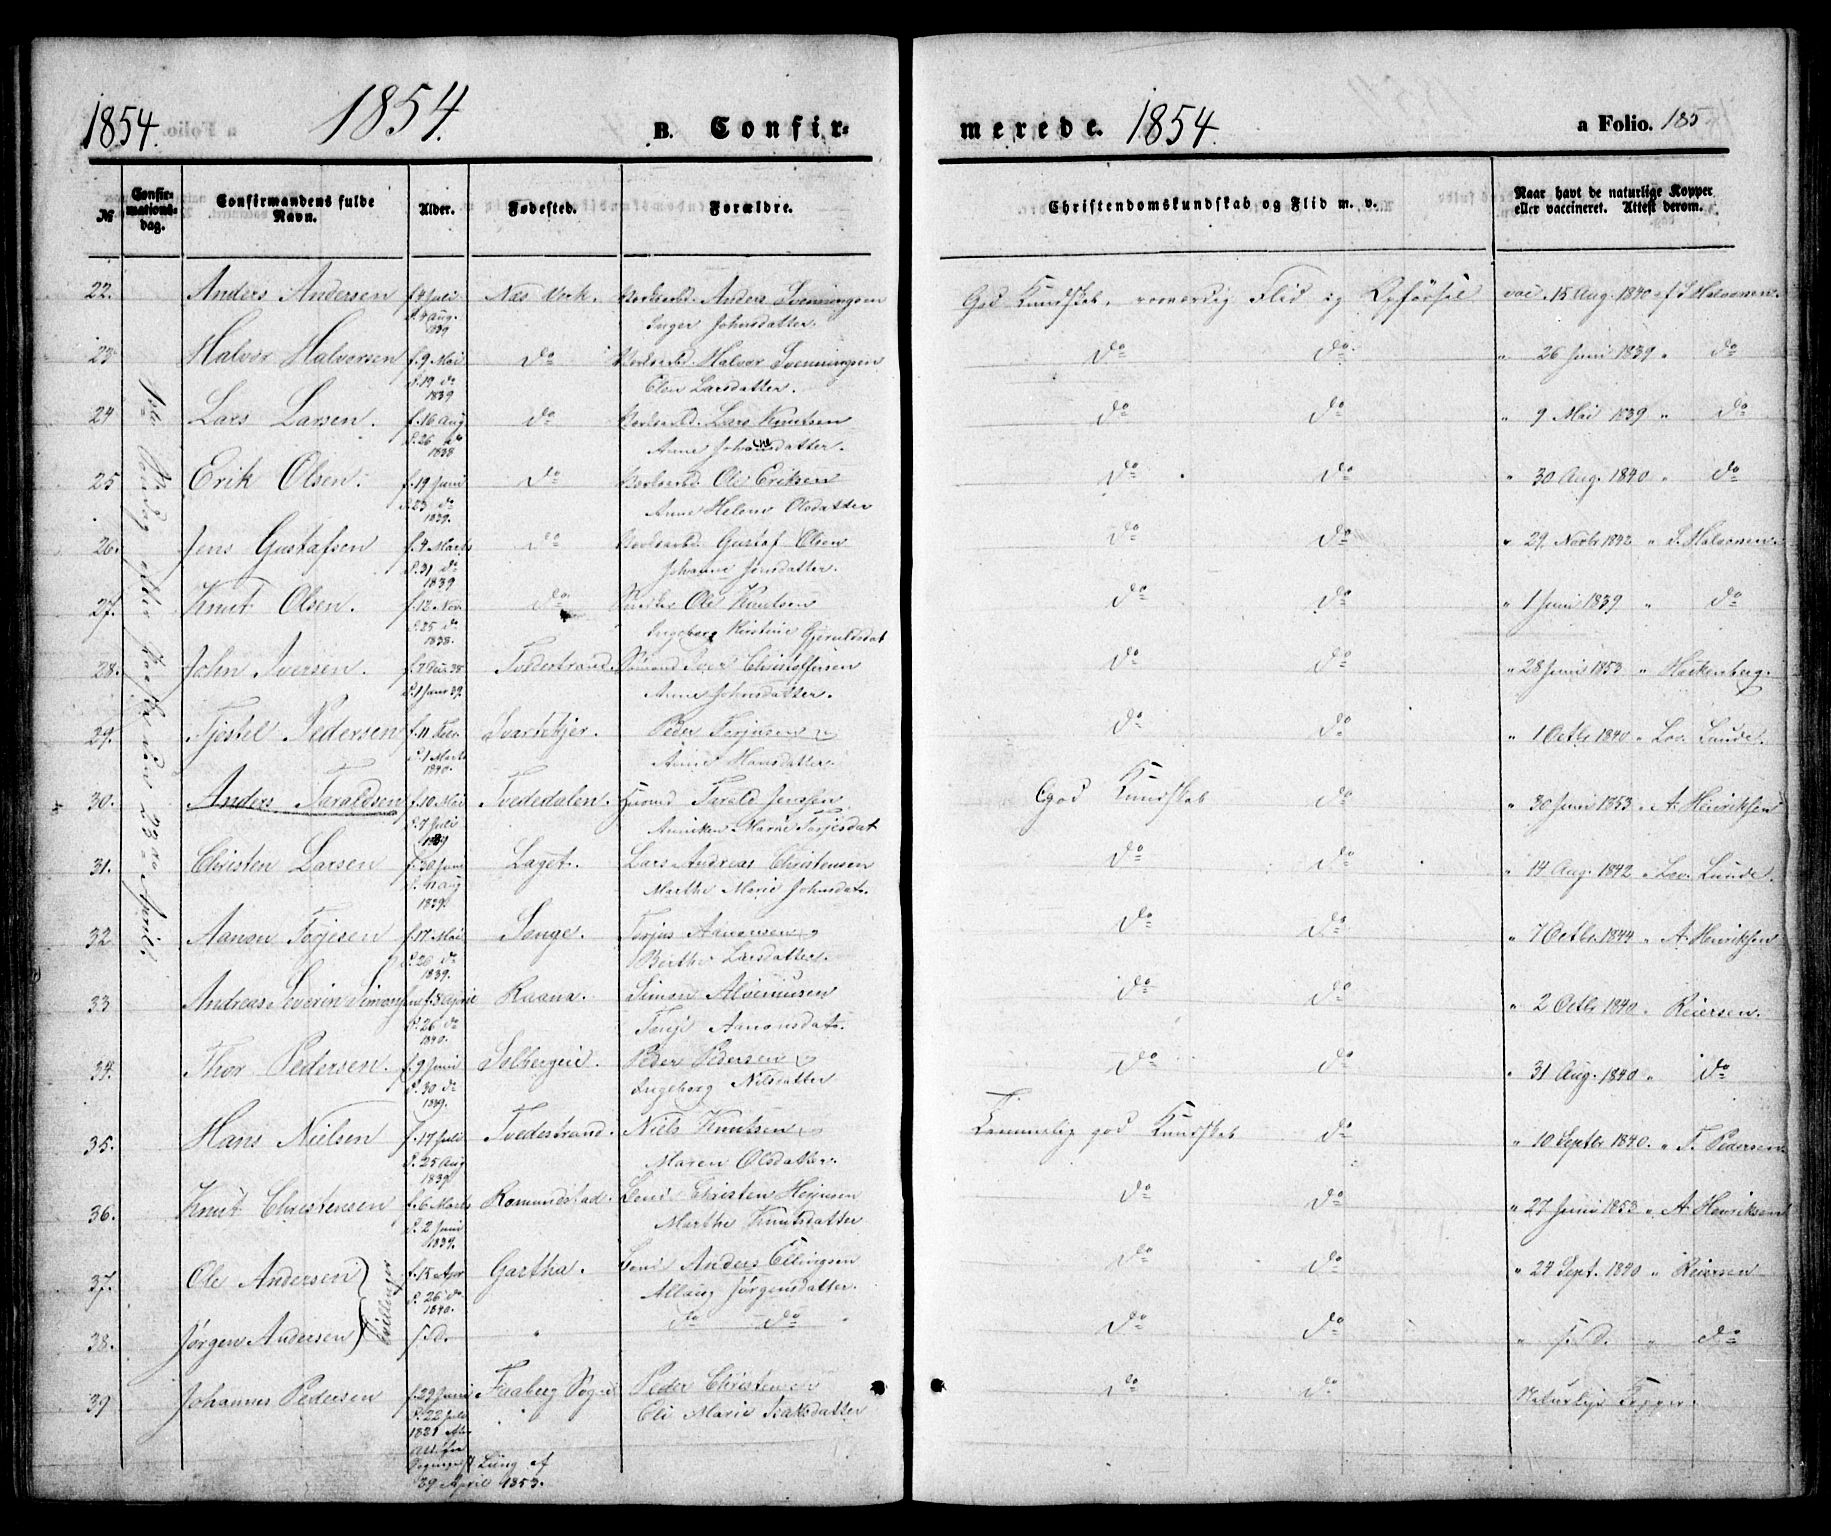 1854. 1854. B. Confir-
merede. 1854. a Folio. 185
№ Confir-mations-dag. Confirmandens fulde Navn. Alder. Fødested. Forældre.
Christendomskundskab og Flid m. v. Naar havt de naturlige Kopper eller vaccineret. Attest derom.
22. Anders Andersen f. 4 Juli Næs Verk. Anders Svenningsen God Kundskab, Flid og Opførsel vac. 15 Aug. 1840 af S. Halvorsen.
d. 4 Aug. 1839 Inger Johnsdatter.
23 Halvor Halvorsen f. 9 Mai do Halvor Svenningsen do do " 26 Juni 1839 " do
d. 19 do 1839 Elen Larsdatter.
24 Lars Larsen. f. 16 Aug do Lars Knutsen do do " 9 Mai 1839 " do
d. 26 do 1838 Anne Johannesdatter.
25 Erik Olsen. f. 19 Juni do Ole Eriksen do do " 30 Aug. 1840 " do
d. 23 do 1839. Anne Helene Olsdatter
26. Jens Gustafsen f. 4 Marts do Gustaf Olsen do do " 29 Novbr 1842 " S. Halvorsen.
d. 31 do 1839 Johanne Jensdatter.
27. Knut Olsen. f. 12 Nov. do Ole Knutsen do do " 1 Juni 1839 " do
d. 25 do 1838. Ingeborg Kirstine Gjeruldsdat
28. John Iversen. f. 7 Dec. 38 Tvedestrand. Iver Christoffersen do do " 28 Juni 1853 " Hackenberg.
d. 1 Janr 39. Anne Johnsdatter.
29. Tjøstel Pedersen f. 11 Svartekjer. Peder Terjusen do do " 1 Octbr 1840 " Lov. Lunde.
d. 1 Marts 1840. Anne Hansdatter.
30. Anders Taraldsen f. 10 Mai Tvededalen. Tarald Jensen God Kundskab do " 30 Juni 1853 " A. Henriksen
d. 7 Juli 1839 Anniken Marie Torjesdat
31. Christen Larsen f. 30 Juni Laget. Lars Andreas Christensen do do " 14 Aug. 1842 " Lov. Lunde.
d. 11 Aug 1839. Marthe Marie Johnsdat.
32 Aanon Torjesen f. 17 Mai Songe. Torjus Aanonsen do do " 7 Octbr 1844 " A. Henriksen
d. 20 do 1839. Berthe Larsdatter.
33 Andreas Severin Simonsen f. 5 April Raana. Simon do do " 2 Octbr 1840 " Reiersen.
d. 26 do 1840. Aanonsdat.
34. Thor Pedersen. f. 9 Juni Solbergeie. Peder Pedersen do do " 31 Aug. 1840 " do
d. 30 do 1839. Ingeborg Nilsdatter
35. Hans Nielsen f. 17 Juli Tvedestrand. Niels Knutsen Temmelig god Kundskab do " 10 Septbr 1840. " T. Pedersen.
d. 25 Aug 1839 Maren Olsdatter.
36. Knut Christensen f. 6 Marts Romundstad. Christen do do " 27 Juni 1853 " A. Henriksen
d. 2 Juni 1839. Marthe Knutsdatter
37. Ole Andersen f. 15 Apr Gartha. Anders Ellingsen do do " 24 Sept. 1840 " Reiersen
d. 26 do 1840. Jørgensdatter.
38. Jørgen Andersen Tvillinger s. D. " do do do do " s. D. " do
39 Johannes Pedersen f. 29 Juni Faaberg Sogn Peder Christensen do do Naturlige Kopper.
d. 22 Juli Eli Marie Isaksdatter
af
29 April 1853.
1ste Søndag efter Paaske den 23de April.